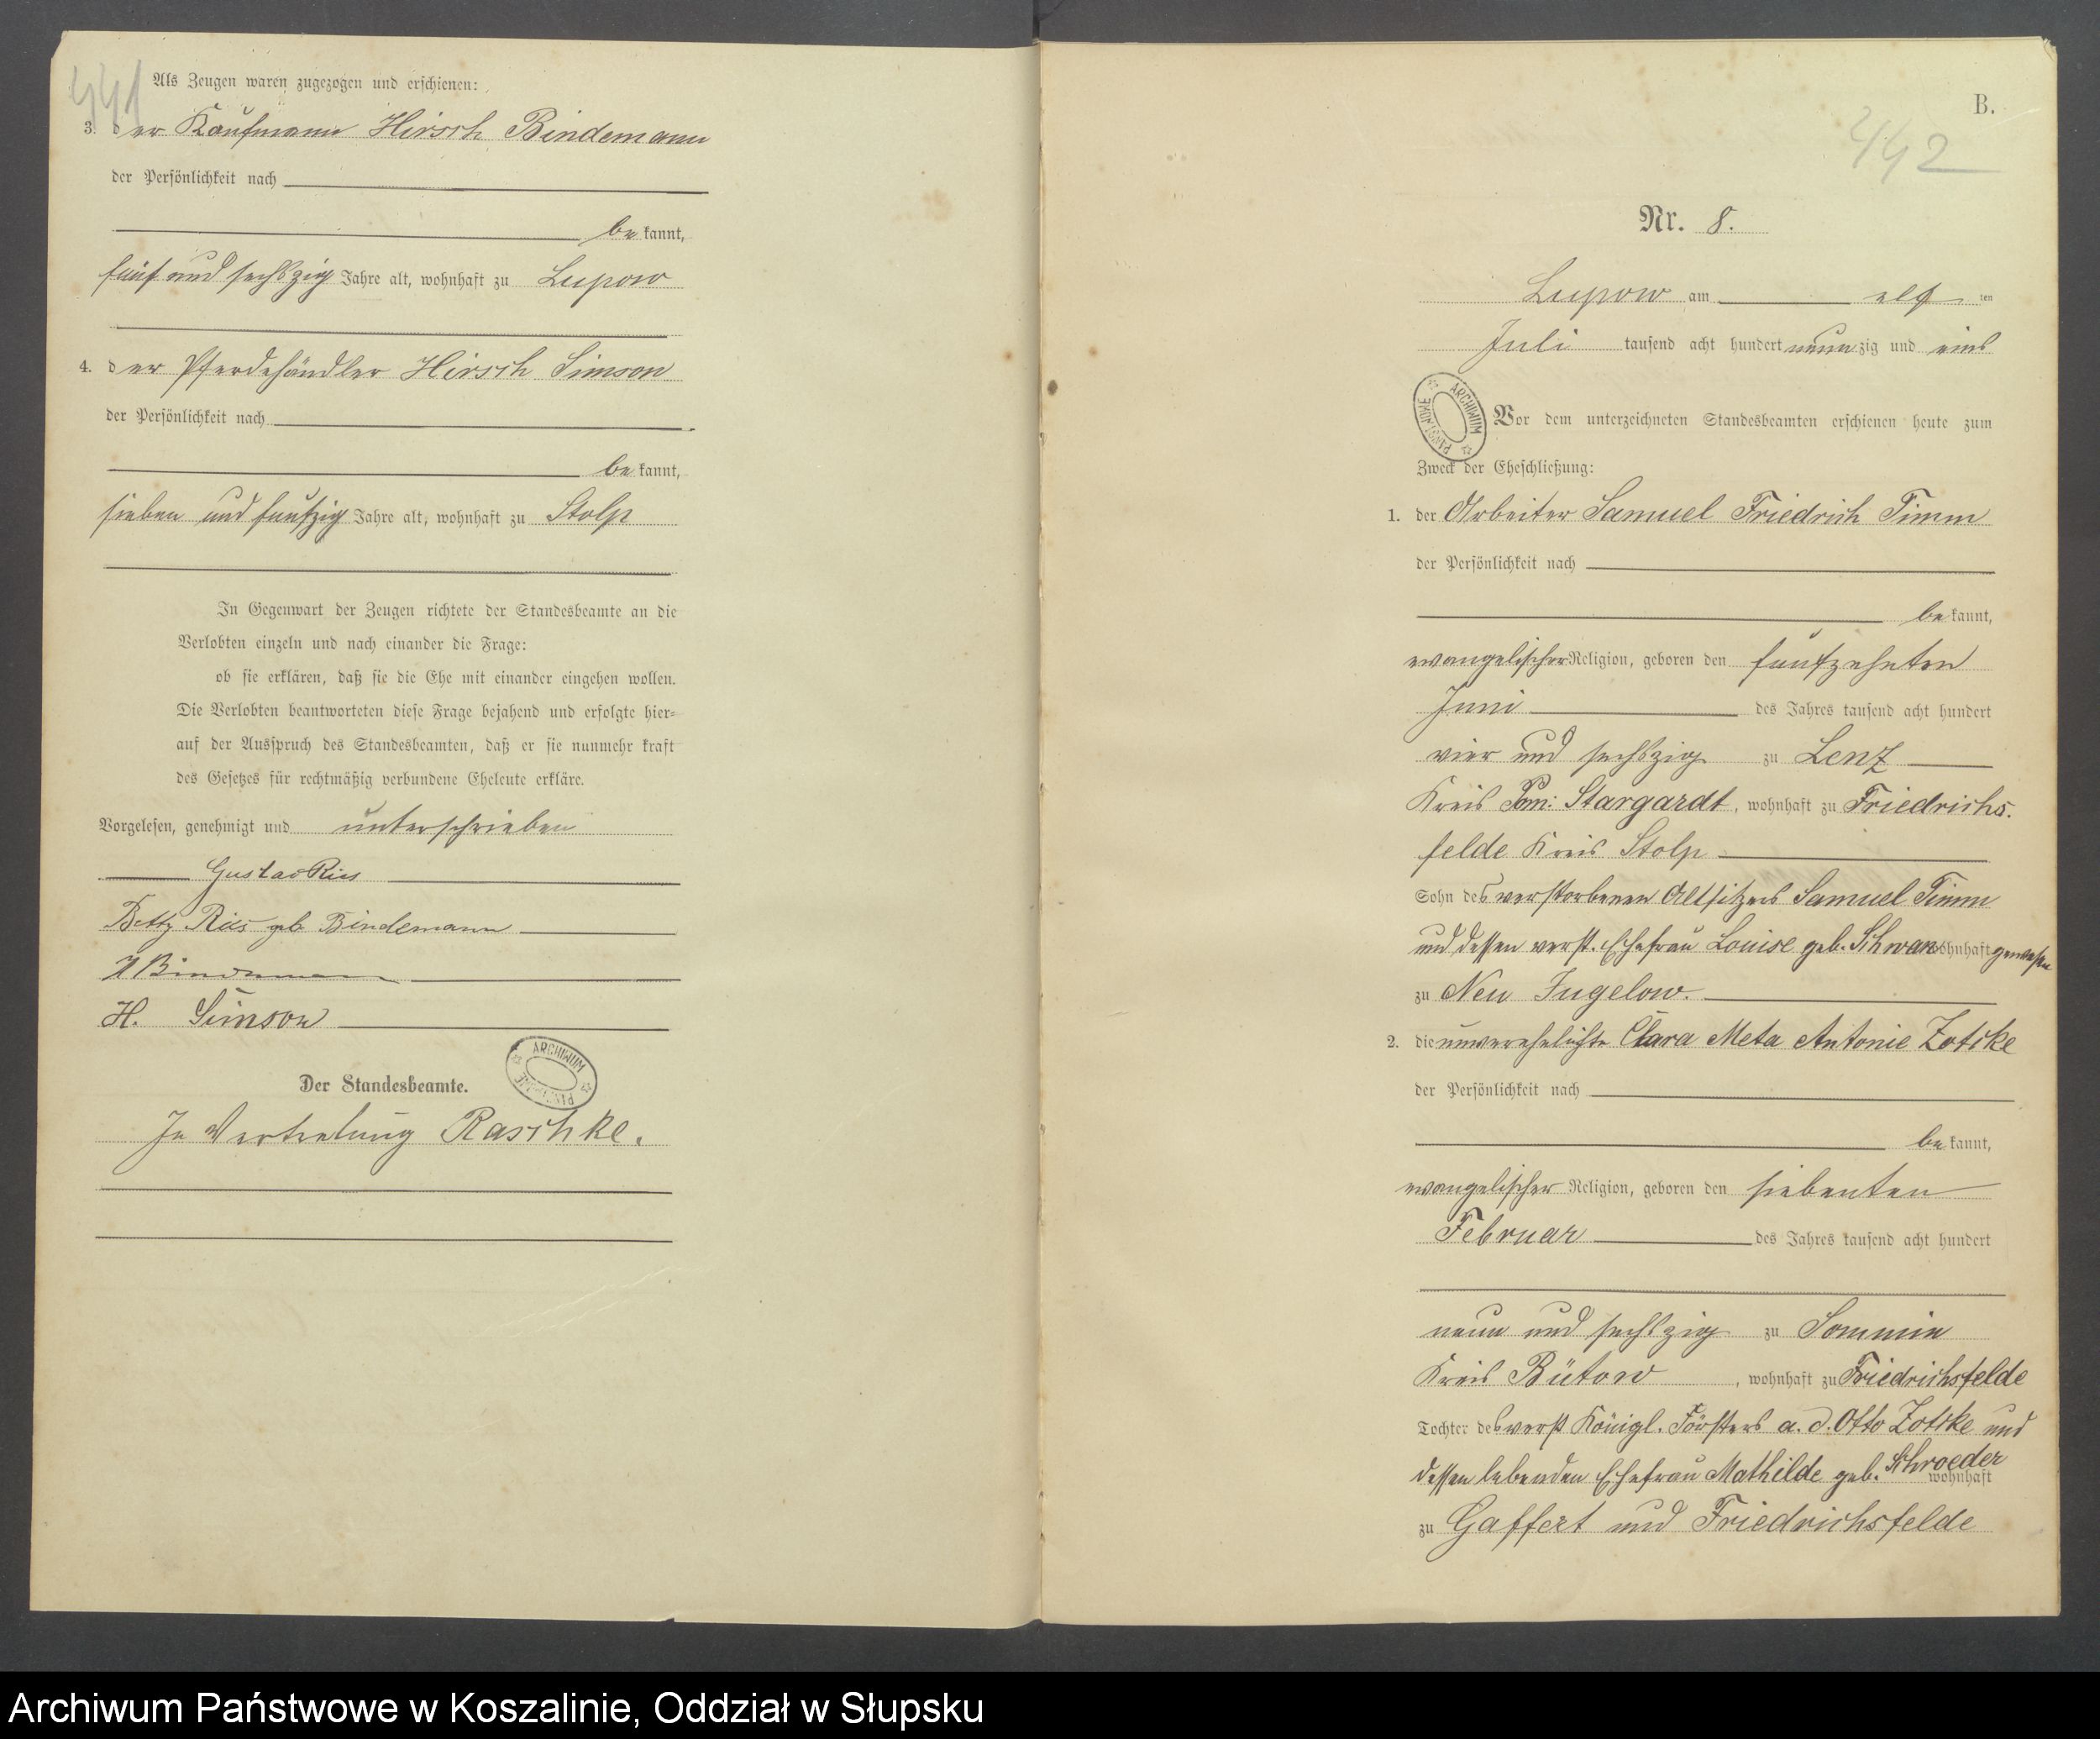 441
Als Zeugen waren zugezogen und erschienen:
3. der Kaufmann Hirsch Bindemann
der Persönlichkeit nach
bekannt,
fünf und sechszig Jahre alt, wohnhaft zu Lupow
4. der Pferdehändler Hirsch Simson
der Persönlichkeit nach
bekannt,
sieben und funfzig Jahre alt, wohnhaft zu Stolp
In Gegenwart der Zeugen richtete der Standesbeamte an die
Verlobten einzeln und nach einander die Frage:
ob sie erklären, daß sie die Ehe mit einander eingehen wollen.
Die Verlobten beantworteten diese Frage bejahend und erfolgte hier-
auf der Ausspruch des Standesbeamten, daß er sie nunmehr kraft
des Gesetzes für rechtmäßig verbundene Eheleute erkläre.
Vorgelesen, genehmigt und unterschrieben
Gustav Ries
Betty Ries geb Bindemann
H Bindemann
H. Simson
ARCHIWUM PAŃSTWOWE
Der Standesbeamte.
In Vertretung Raschke.
B.
442
Nr. 8.
Lupow am elf ten
Juli tausend acht hundert neunzig und eins
ARCHIWUM PAŃSTWOWE
Vor dem unterzeichneten Standesbeamten erschienen heute zum
Zweck der Eheschließung:
1. der Arbeiter Samuel Friedrich Timm
der Persönlichkeit nach
bekannt,
evangelischer Religion, geboren den funfzehnten
Juni des Jahres tausend acht hundert
vier und sechszig zu Lenz
Kreis Pom: Stargardt, wohnhaft zu Friedrichs.
felde Kreis Stolp
Sohn des verstorbenen Altsitzers Samuel Timm
und dessen verst. Ehefrau Louise geb. Schwan wohnhaft gewesen
zu Neu Jugelow.
2. die unverehelichte Clara Meta Antonie Zotzke
der Persönlichkeit nach
bekannt,
evangelischer Religion, geboren den siebenten
Februar des Jahres tausend acht hundert
neun und sechszig zu Sommin
Kreis Bütow, wohnhaft zu Friedrichsfelde
Tochter des verst Königl. Försters a. d. Otto Zotzke und
dessen lebenden Ehefrau Mathilde geb. Schroeder wohnhaft
zu Gaffert und Friedrichsfelde
Archiwum Państwowe w Koszalinie, Oddział w Słupsku